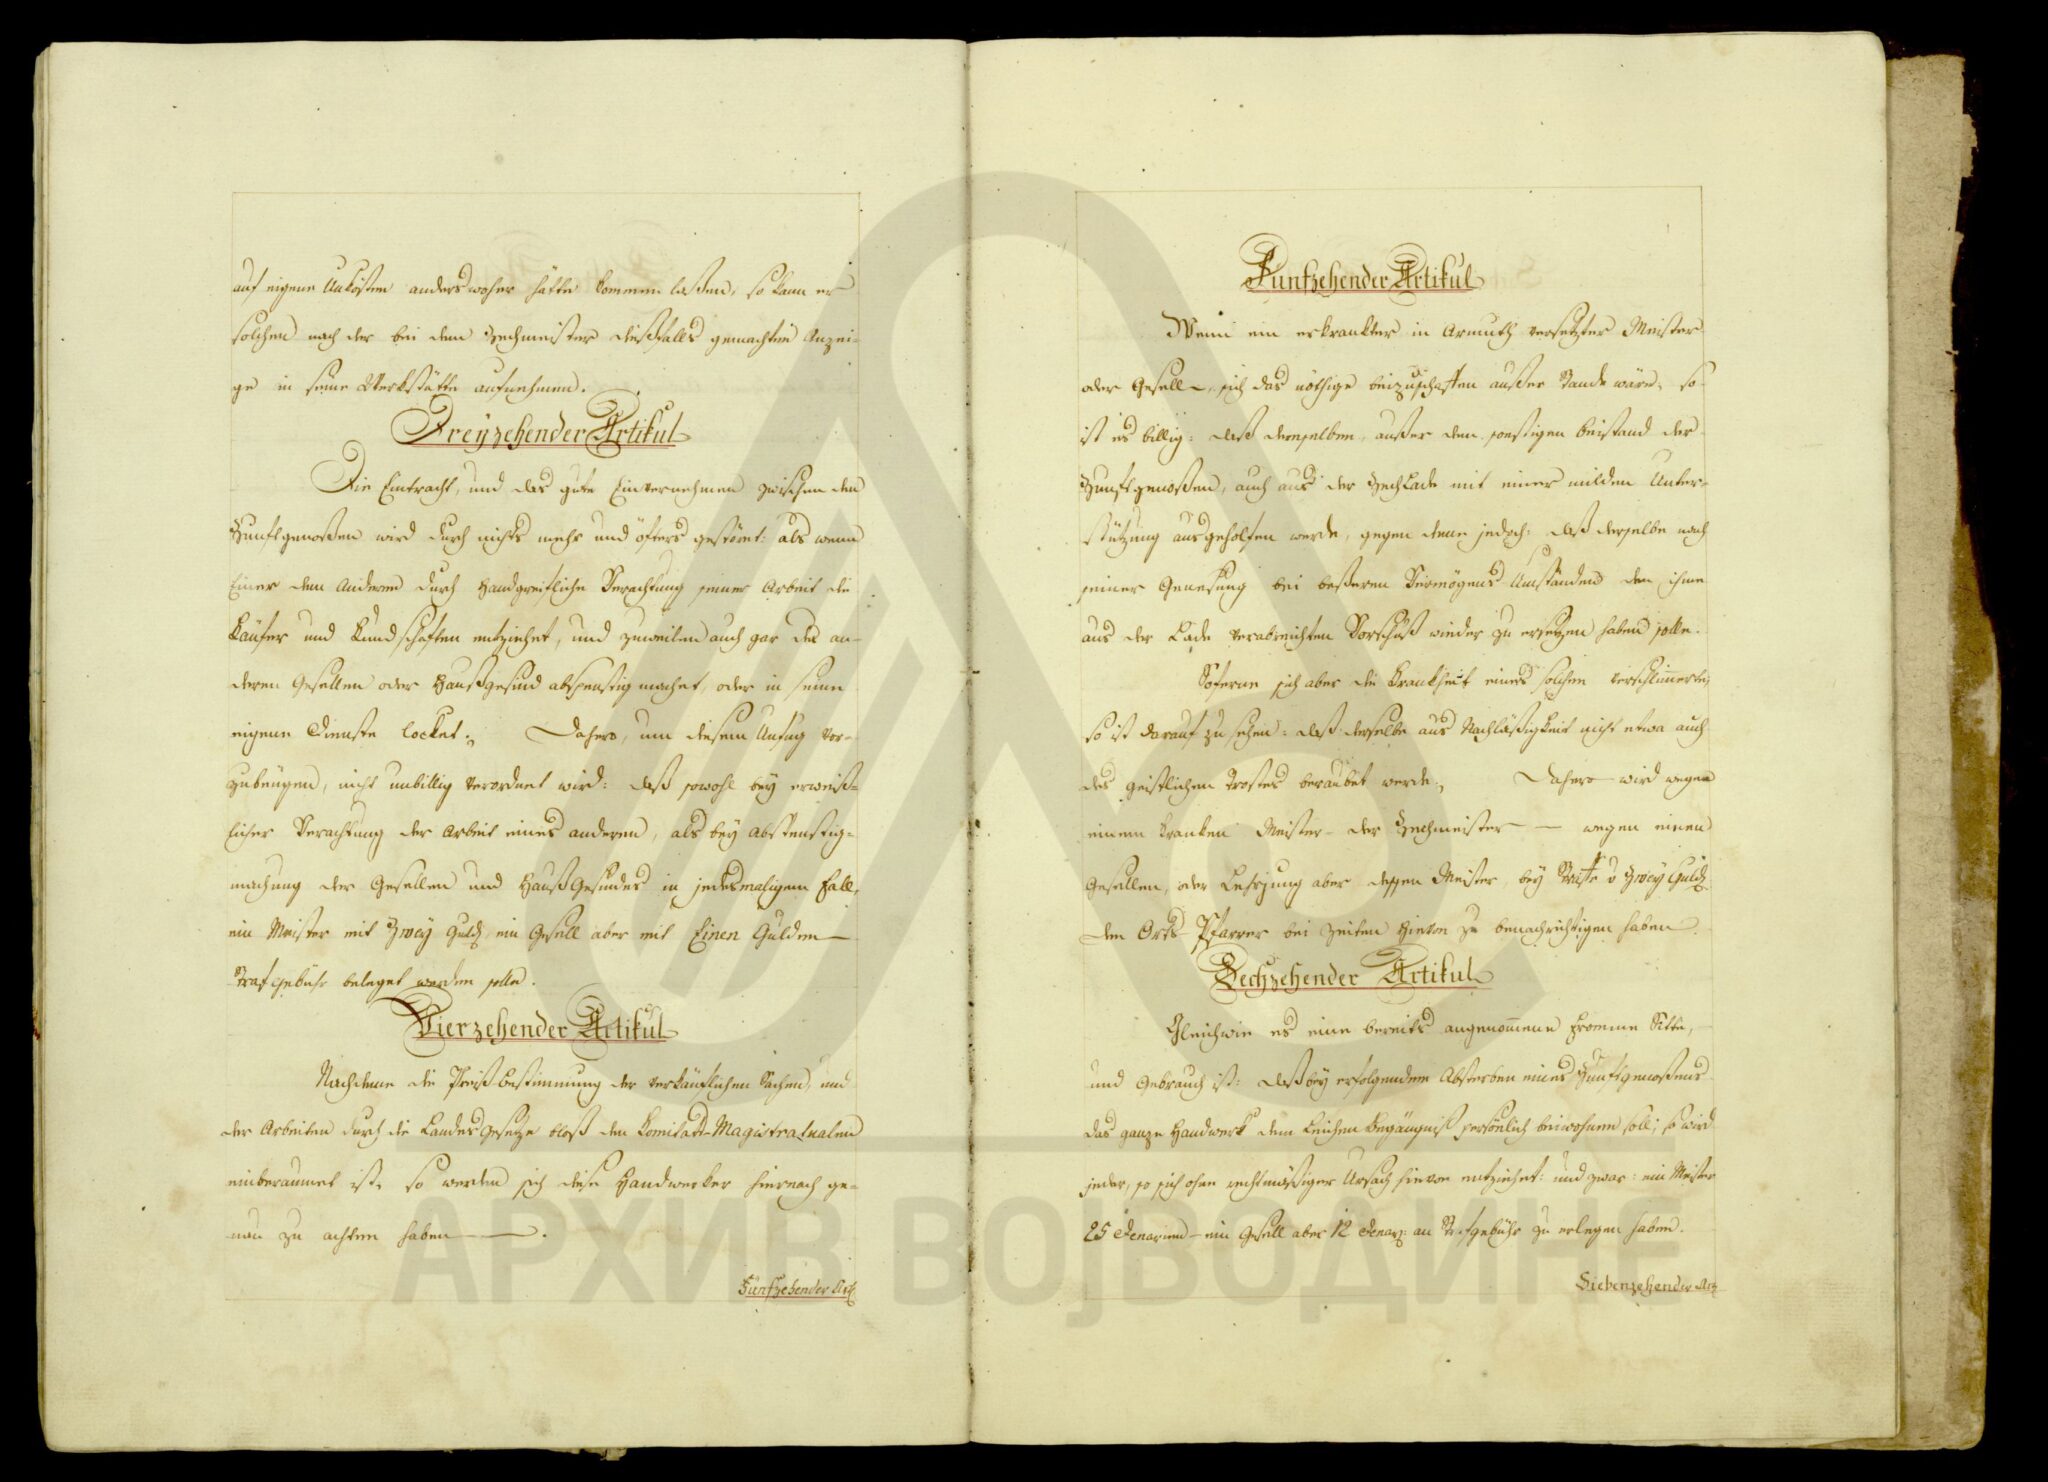 auf eigene Unkösten anderswoher hätte kommen laßen, so kann er
solchen nach der bei dem Zechmeister dießfalls gemachten Anzei-
ge in seine Werkstätte aufnehmen.
Dreyzehender Artikul
Die Eintracht, und das gute Einvernehmen zwischen den
Zunftgenoßen wird durch nichts mehr und öfters gestöret: als wenn
Einer dem Anderen durch Handgreifliche Verachtung seiner Arbeit die
Käufer und Kundschaften entziehet, und zuweilen auch gar des an-
deren Gesellen oder Haußgesind abspenstig machet, oder in seine
eigene Dienste locket. Dahero, um diesem Unfug vor-
zubeugen, nicht unbillig verordnet wird: daß sowohl bey erweiß-
licher Verachtung der Arbeit eines anderen, als bey Abspenstig-
machung der Gesellen und Haußgesindes in jedesmaligem Fall,
ein Meister mit Zwey Guld, ein Gesell aber mit Einen Gulden
Strafgebühr beleget werden solle.
Vierzehender Artikul
Nachdeme die Preißbestimmung der verkäuflichen Sachen, und
der Arbeiten durch die Landesgesetze bloß den Komitats-Magistratualen
einberaumet ist, so werden sich diese Handwerker hiernach ge-
nau zu achten haben.
Fünfzehender Art
Funfzehender Artikul
Wenn ein erkrankter in Armuth versetzter Meister
oder Gesell, sich das nöthige beizuschaffen außer Stande wäre, so
ist es billig: daß demselben, außer dem sonstigen Beistand der
Zunftgenoßen, auch aus der ZechLade mit einer milden Unter-
stützung ausgeholfen werde, gegen deme jedoch: daß derselbe nach
seiner Genesung bei beßeren Vermögens Umständen den ihme
aus der Lade verabreichten Vorschuß wieder zu ersetzen haben solle.
Soferne sich aber die Krankheit eines solchen verschlimmerte,
so ist darauf zu sehen: daß derselbe aus Nachläßigkeit nicht etwa auch
des geistlichen Trostes beraubet werde. Dahero wird wegen
einem kranken Meister – der Zechmeister – wegen einen
Gesellen, oder Lehrjung aber dessen Meister, bey Straffe v Zwey Guld
den Orts Pfarrer bei Zeiten hievon zu benachrichtigen haben.
Sechzehender Artikul
Gleichwie es eine bereits angenommene fromme Sitte,
und Gebrauch ist: daß bey erfolgendem Absterben eines Zunftgenoßens
das ganze Handwerk dem Leichen Begängniß persönlich beiwohnen soll; so wird
jeder, so sich ohne rechtmäßiger Ursach hievon entziehet: und zwar: ein Meister
25 Denarien – ein Gesell aber 12 Denar: an Strafgebühr zu erlegen haben.
Siebenzehender Art
АРХИВ ВОЈВОДИНЕ